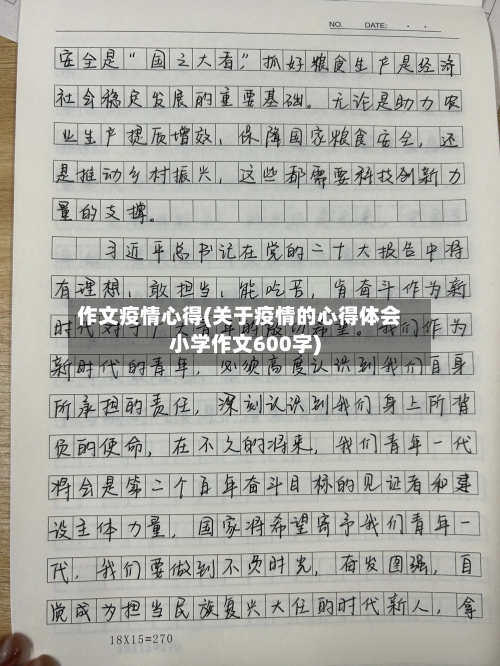 NO. DATE: · ·
安全是“国之大者”，抓好粮食生产是经济
社会稳定发展的重要基础。无论是助力农
业生产提质增效、保障国家粮食安全，还
是推动乡村振兴，这些都需要科技创新力
量的支撑。
习近平总书记在党的二十大报告中将
有理想、敢担当、能吃苦、肯奋斗作为新
作文疫情心得(关于疫情的心得体会
小学作文600字)
新时代的青年，必须高度认识到我们自身
所承担的责任，深刻认识到我们身上所背
负的使命，在不久的将来，我们青年一代
将会是第二个百年奋斗目标的见证者和建
设主体力量，国家将希望寄予我们青年一
代，我们要做到不负时光，奋发图强，自
觉成为担当民族复兴大任的时代新人，拿
18X15=270